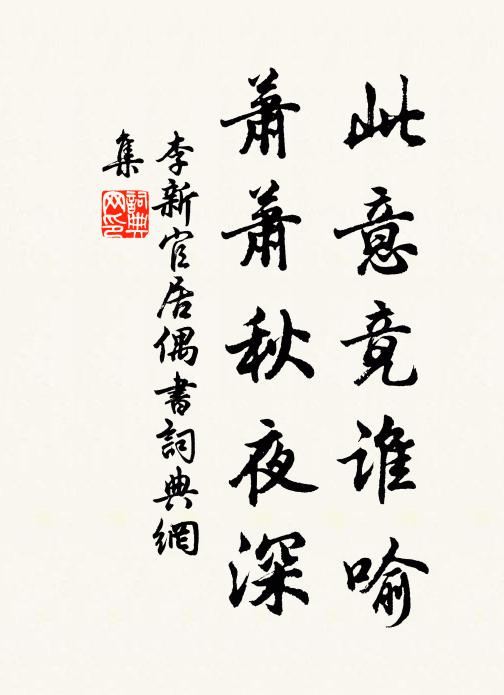 此意竟谁喻
蕭蕭秋夜深
李新官居偶書詞典網
集
詞典
网印